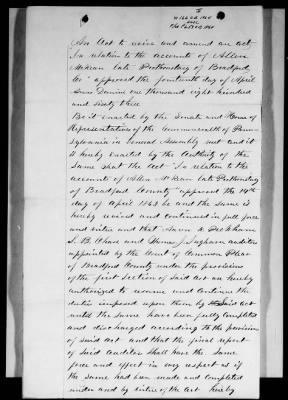 An Act to revive and amend an act
"In relation to the accounts of Allen
McKean late Prothonotary of Bradford
Co" approved the fourteenth day of April
Anno Domini one thousand eight hundred
and sixty three
Be it enacted by the Senate and House of
Representatives of the Commonwealth of Penn-
sylvania in General Assembly met and it
is hereby enacted by the Authority of the
Same that the Act "In relation to the
accounts of Allen McKean late Prothonotary
of Bradford County" approved the 14th
day of April 1863 be and the same is
hereby revived and continued in full force
and virtue and that
S. B. Chase and Thomas J. Ingham auditors
appointed by the Court of Common Pleas
of Bradford County under the provisions
of the first Section of Said Act are hereby
authorized to resume and continue the
duties imposed upon them by Said Act
until the Same have been fully completed
and discharged according to the provisions
of said Act and that the final report
of Said Auditors Shall have the Same
force and effect in every respect as if
the Same had been made and completed
under and by virtue of the Act hereby